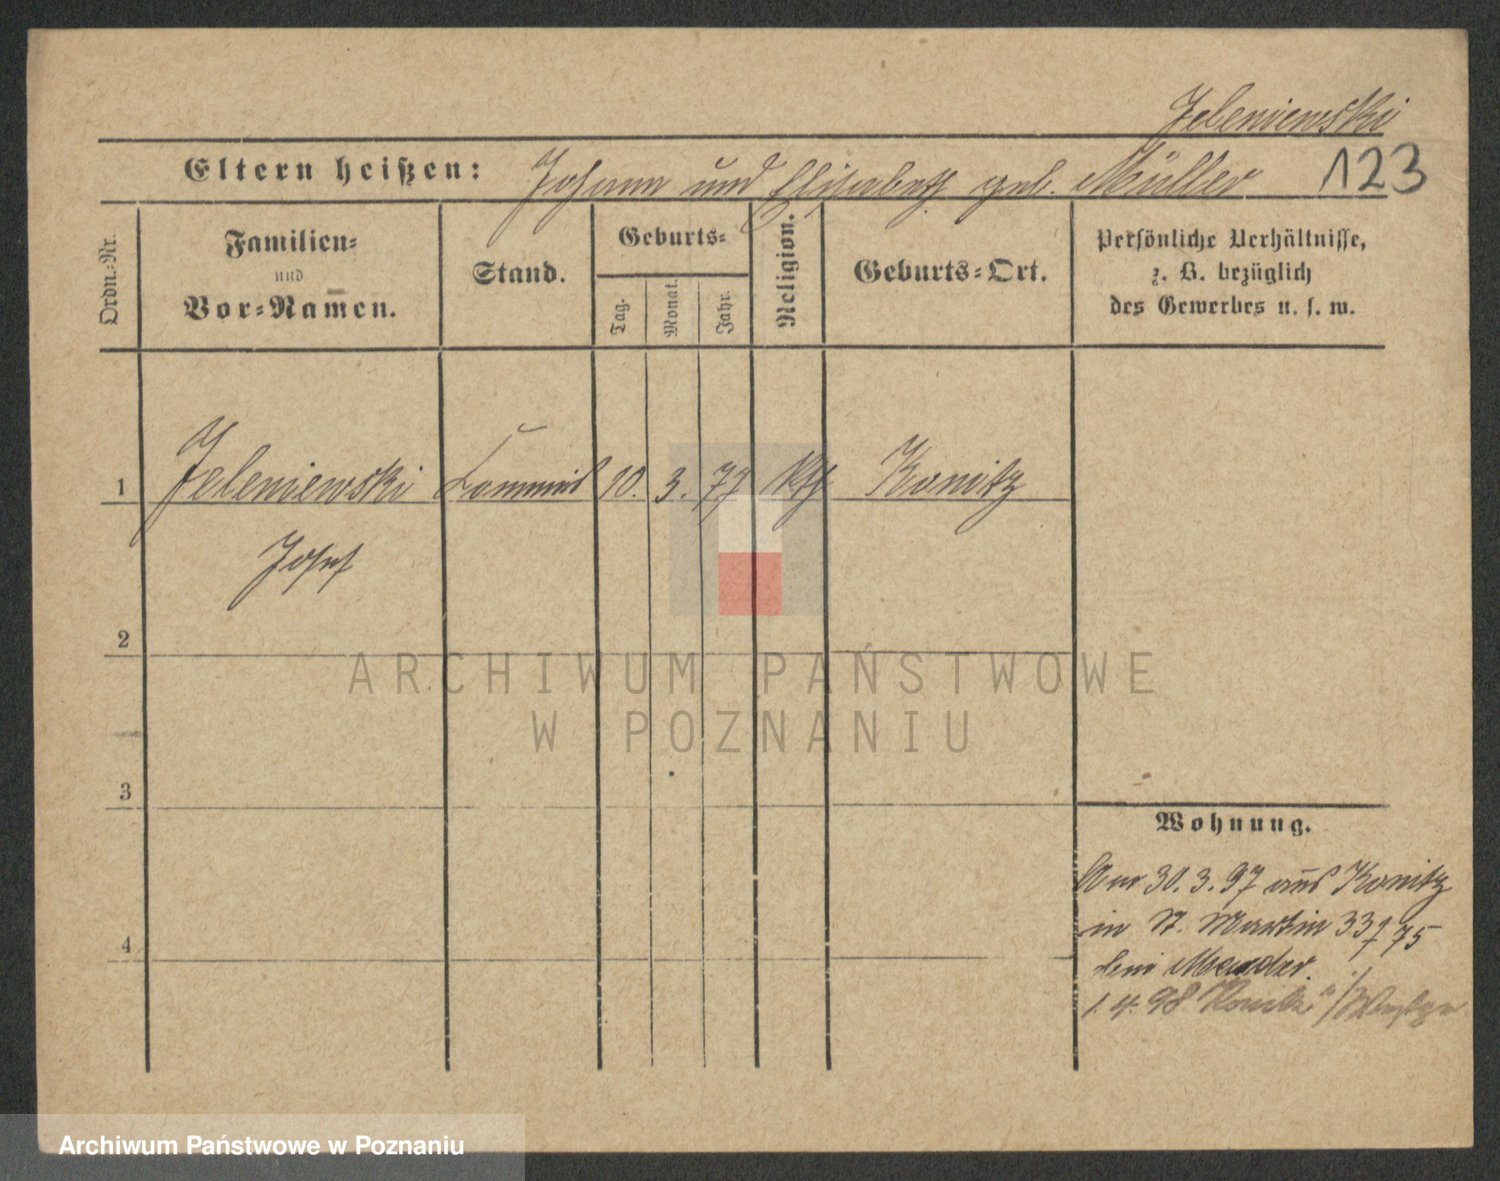 Jeleniewski
Eltern heißen: Johann und Elisabeth geb. Müller 123
Ordn.-Nr.
Familien-
und
Vor-Namen.
Stand.
Geburts-
Tag.
Monat.
Jahr.
Religion.
Geburts-Ort.
Persönliche Verhältnisse,
z. B. bezüglich
des Gewerbes u. s. w.
1 Jeleniewski Commis 10. 3. 77 kth Konitz
Josef
2
3
4
Wohnung.
Am 30.3.97 aus Konitz
in St. Martin 33
bei
1.4.98
ARCHIWUM PAŃSTWOWE
W POZNANIU
Archiwum Państwowe w Poznaniu